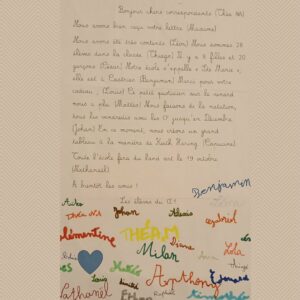 Bonjour chers correspondants (Théa NA)
Nous avons bien reçu votre lettre (Maxime)
Nous avons été très contents (Léon) Nous sommes 28
élèves dans la classe (Thiago) Il y a 8 filles et 20
garçons (César) Notre école s'appelle « Ste Marie »,
elle est à Castries (Benjamin) Merci pour votre
cadeau, (Louis) Ce petit quotidien sur le canard
nous a plu (Mattéo) Nous faisons de la natation,
tous les vendredis avec les CP jusqu'en Décembre
(Johan) En ce moment, nous créons un grand
tableau à la manière de Keith Haring (Capucine)
Toute l'école fera du land art le 19 octobre
(Nathanaël)
A bientôt les amis !
Les élèves du CE1
Benjamin
THÉA NA
Johan
Alexis
gabriel
Clémentine
THÉA M
Diane
Lola
Milan
Louis
Anthony
Edouard
Nathanaël
Ethan
Raphaël